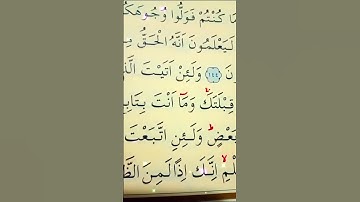 مَا كُنْتُمْ فَوَلُّوا وُجُوهَكُ
لَيَعْلَمُونَ أَنَّهُ الْحَقُّ مِ
ونَ ﴿١٤٤﴾ وَلَئِنْ اَتَيْتَ الَّذ
قِبْلَتَكَ وَمَٓا اَنْتَ بِتَابِ
بَعْضٍ وَلَئِنِ اتَّبَعْتَ
لْمِ اِنَّكَ اِذًا لَمِنَ الظَّا